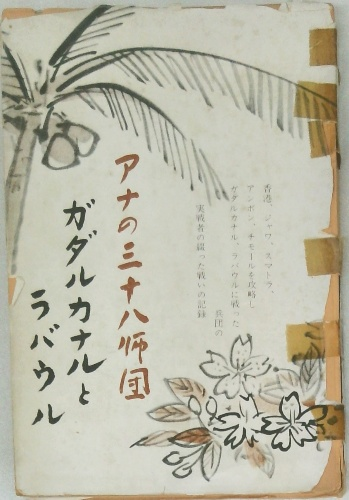 アナの三十八师团
ガダルカナルと
ラバウル
香港、ジャワ、スマトラ、
アンボン、チモールを攻略し
ガダルカナル、ラバウルに戦った
兵団の
実戦者の綴った戦いの記録